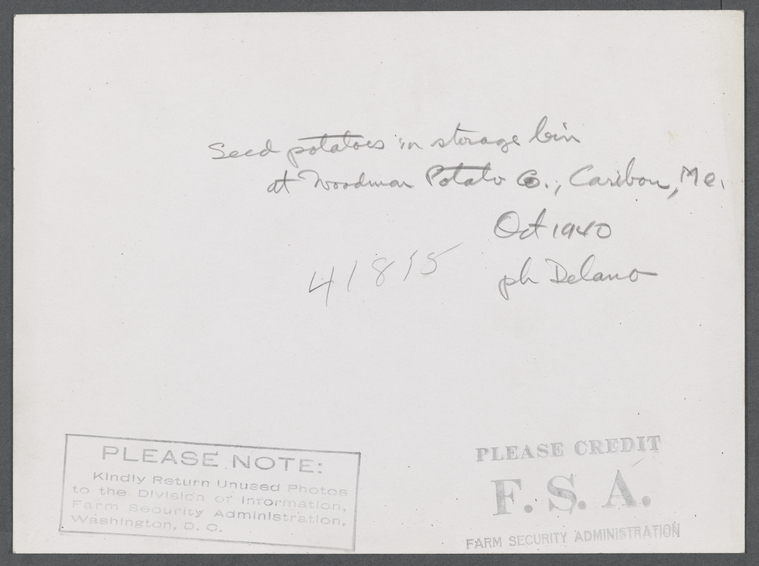 Seed potatoes in storage bin
at Woodman Potato Co., Caribou, Me.
Oct 1940
41815
ph Delano
PLEASE NOTE:
Kindly Return Unused Photos
to the Division of Information,
Farm Security Administration,
Washington, D. C.
PLEASE CREDIT
F. S. A.
FARM SECURITY ADMINISTRATION